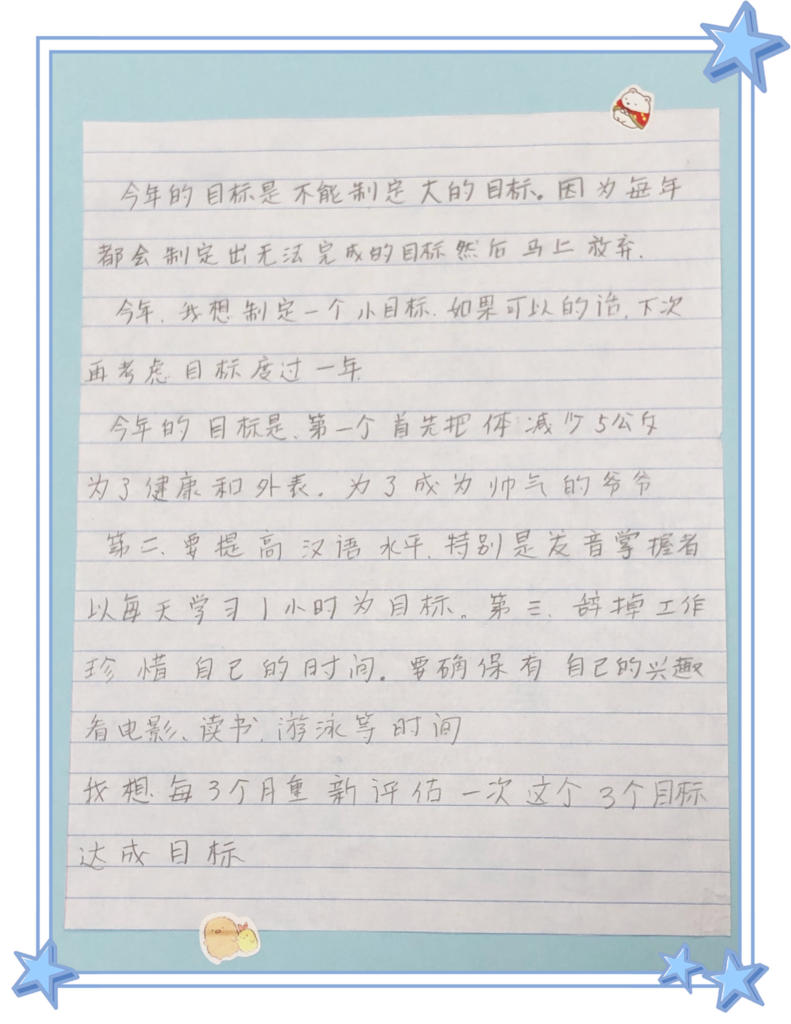 今年的目标是不能制定大的目标。因为每年
都会制定出无法完成的目标然后马上放弃.
今年.我想制定一个小目标.如果可以的话.下次
再考虑目标度过一年
今年的目标是.第一个首先把体减少5公斤
为了健康和外表.为了成为帅气的爷爷
第二.要提高汉语水平.特别是发音掌握者
以每天学习1小时为目标。第三.辞掉工作
珍惜自己的时间。要确保有自己的兴趣
看电影、读书.游泳等时间
我想.每3个月重新评估一次这个3个目标
达成目标